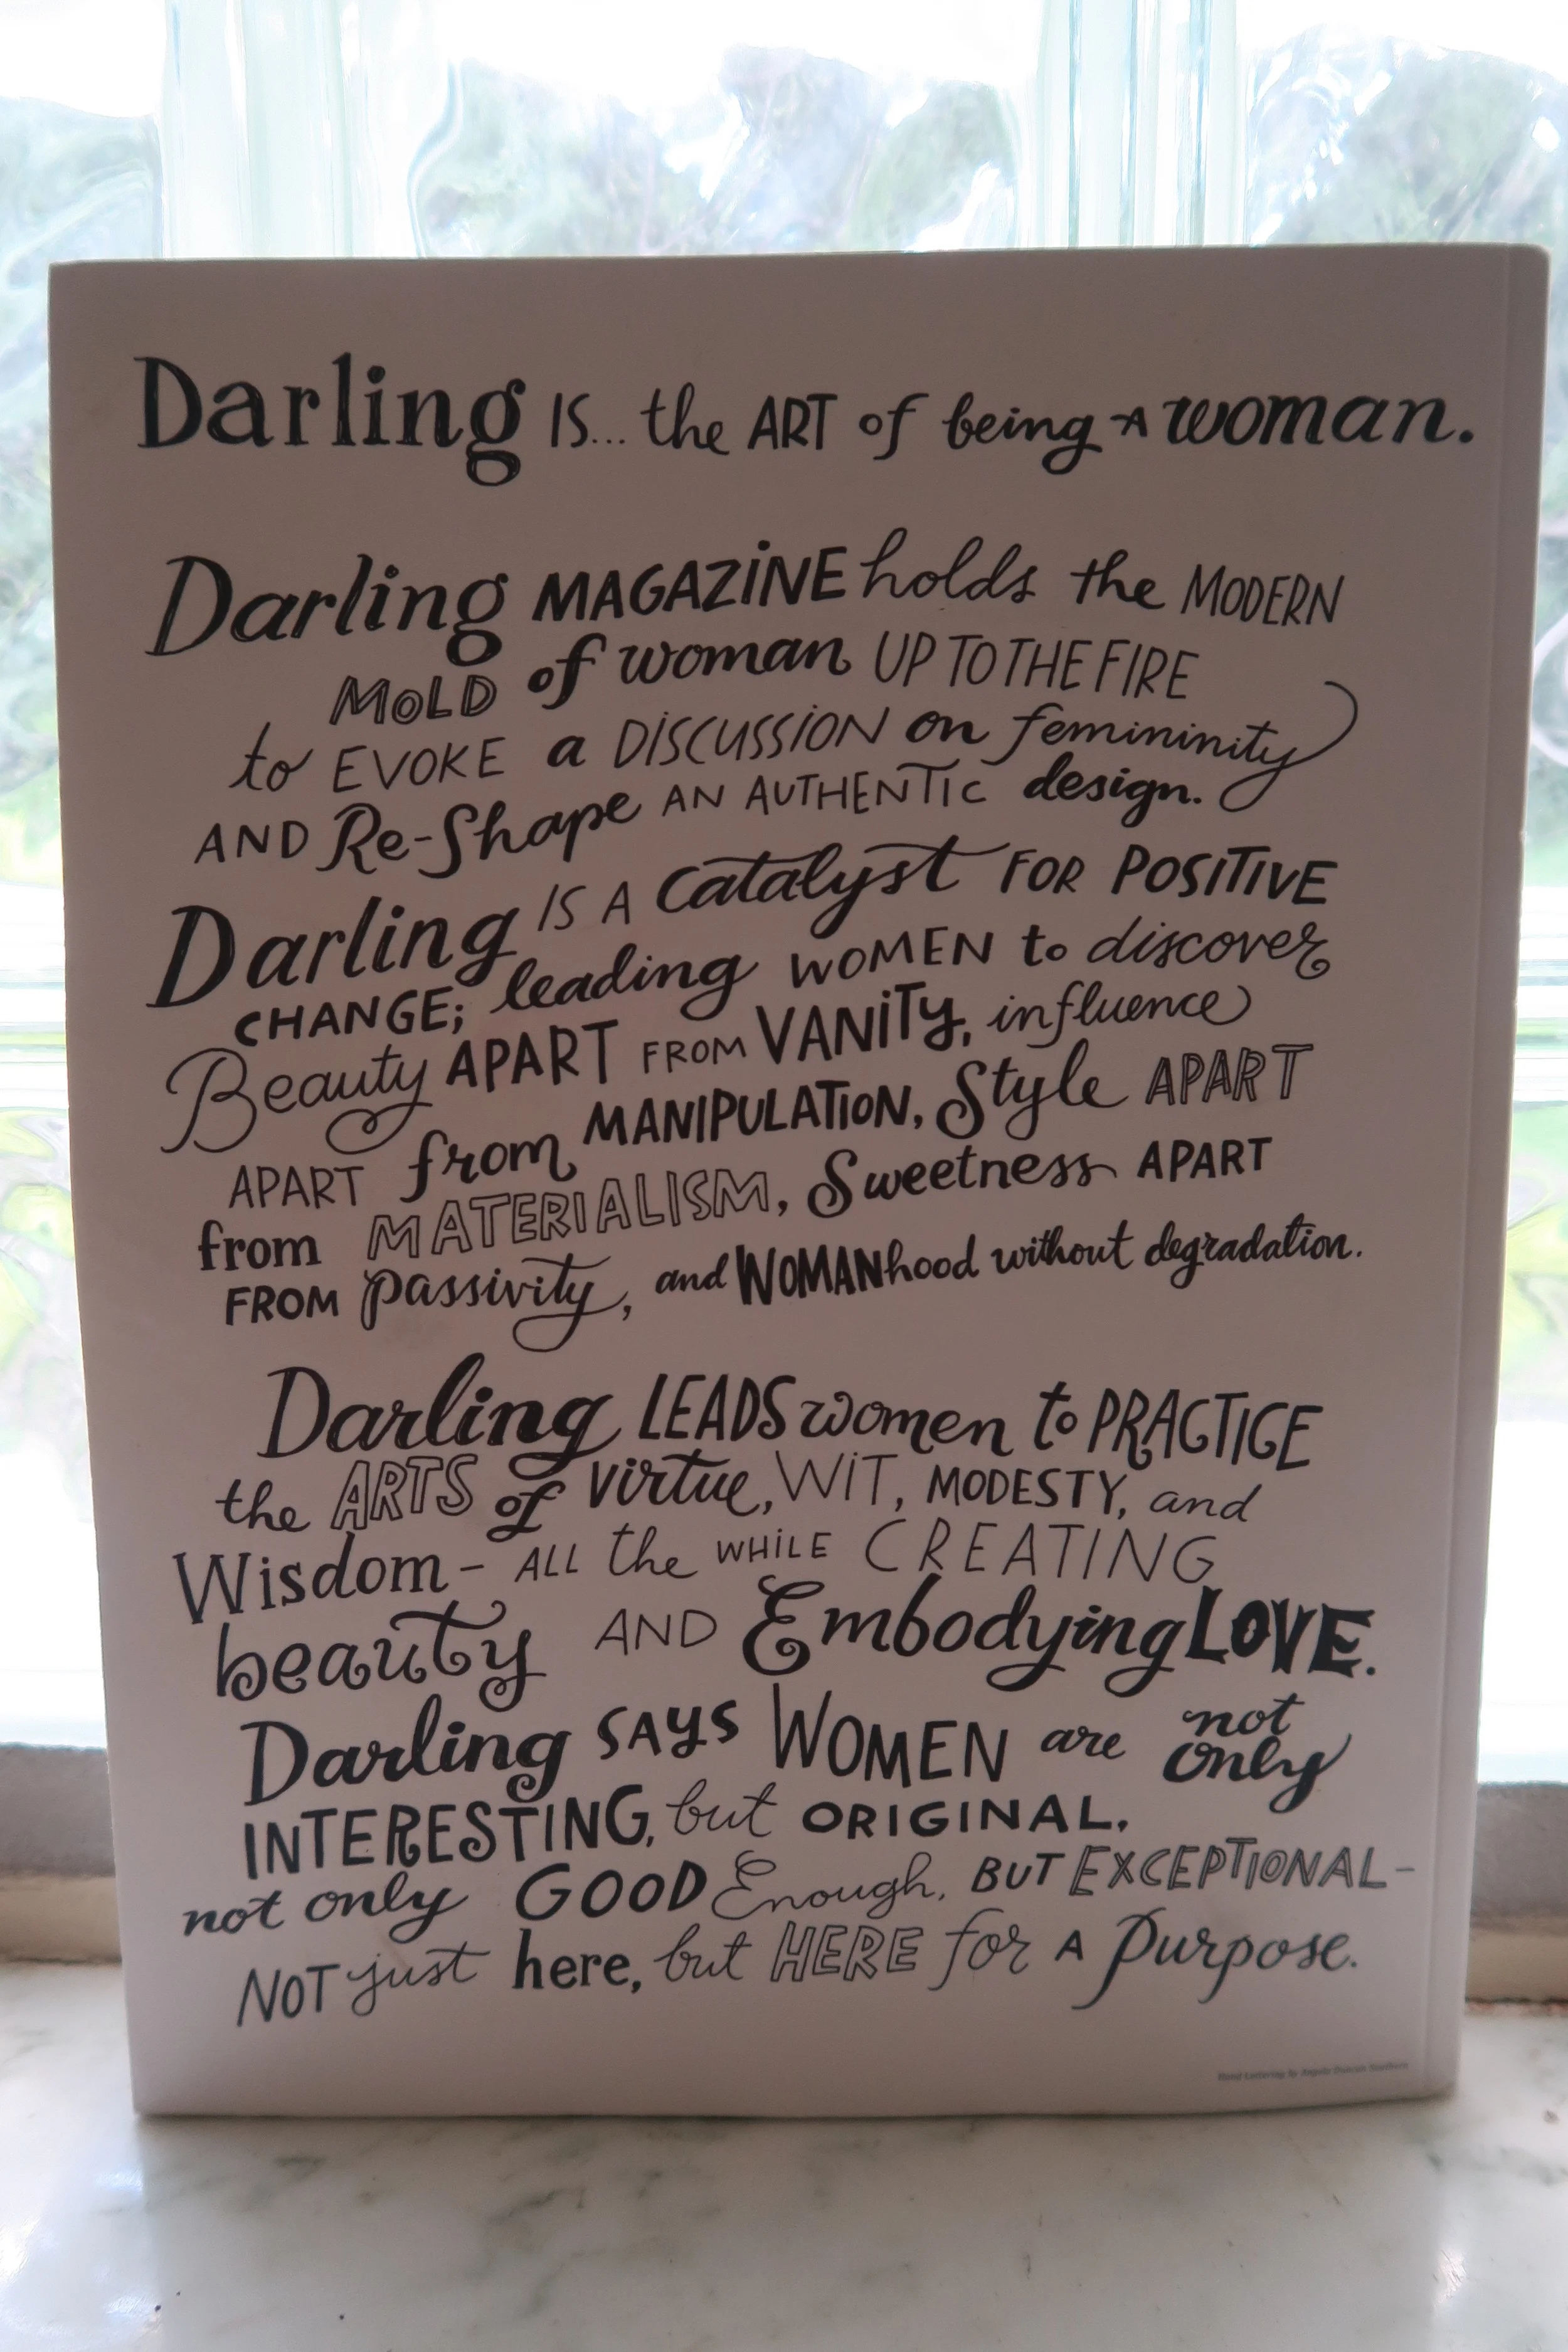 Darling IS... the ART of being A woman.
Darling MAGAZINE holds the MODERN
MOLD of woman UP TO THE FIRE
to EVOKE a DISCUSSION on femininity
AND Re-Shape AN AUTHENTIC design.
Darling IS A Catalyst FOR POSITIVE
CHANGE; leading WOMEN to discover
Beauty APART FROM VANITY, influence
APART from MANIPULATION, Style APART
from MATERIALISM, Sweetness APART
FROM passivity, and WOMANhood without degradation.
Darling LEADS women to PRACTICE
the ARTS of virtue, WIT, MODESTY, and
Wisdom - ALL the WHILE CREATING
beauty AND Embodying LOVE.
Darling SAYS WOMEN are not only
INTERESTING, but ORIGINAL,
not only GOOD Enough, BUT EXCEPTIONAL-
NOT just here, but HERE for A Purpose.
Hand Lettering by Angela Duncan